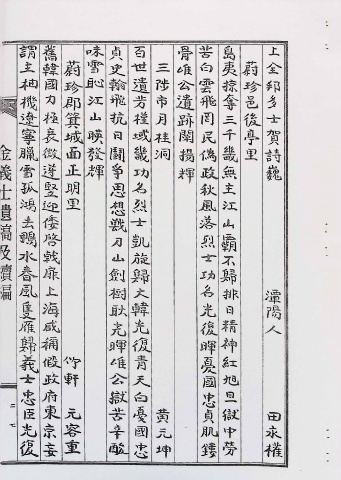 上全邱多士賀詩巍
蔚珍邑後亭里 潭陽人 田永權
島夷掠奪三千幾無主江山霸不歸排日精神紅旭旦獄中勞
苦白雲飛罔民偽政秋風落烈士功名光復暉憂國忠貞肌鏤
骨雄公遺跡闡揚輝
三陟市月桂洞 黃元坤
百世遺芳槿域幾功名烈士凱旋歸大韓光復青天白憂國忠
貞史翰飛抗日鬪爭思想戰刀山劍樹耿光暉雄公獄苦辛酸
味雪恥江山暎發輝
蔚珍郡箕城面正明里 竹軒 元容重
舊韓國力極衰微逆豎迎倭啓戟扉上海威補假政府東京妄
謂主樞機遼寧臘雲孤鴻去鴨水春風隻雁歸義士忠臣光復
金義士遺滴及續編
二七